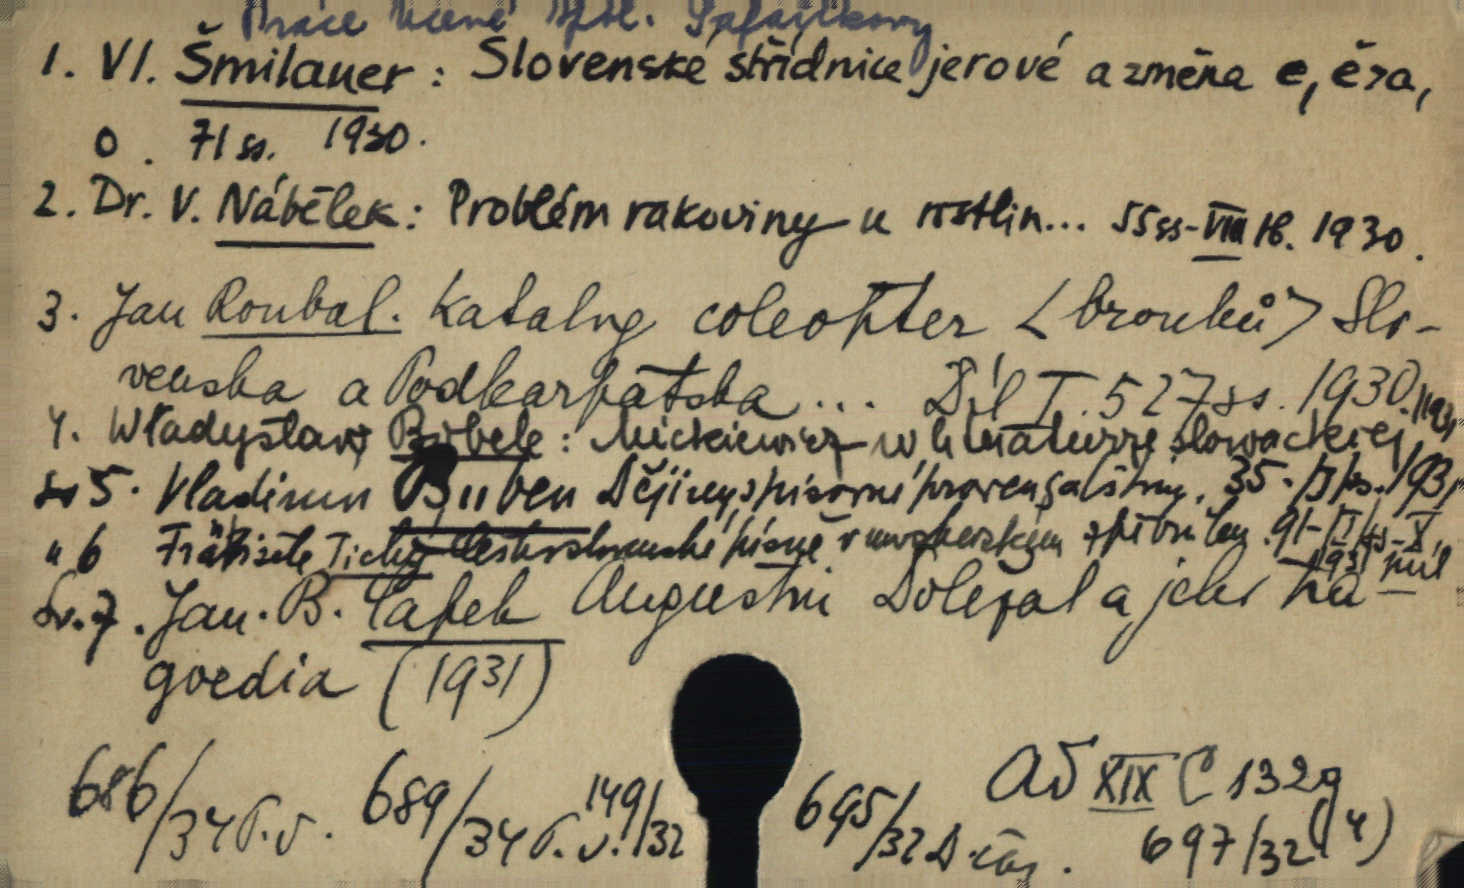 Práce Učené Spol. Šafaříkovy
1. Vl. Šmilauer: Slovenské střídnice jerové a změna e, ě > a,
o. 71 ss. 1930.
2. Dr. V. Nábělek: Problém rakoviny u rostlin... 55 ss - VIII tb. 1930.
3. Jan Roubal. Katalog coleopter <brouků> Slo-
venska a Podkarpatska... Díl I. 527 ss. 1930.
4. Władysław Bobek: Mickiewicz w literaturze słowackiej,
5. Vladimír Buben Dějiny spisovné provensálštiny. 35. 1931
" 6 František Tichý Československé písně v moskevském zpěvu 91-
Sv. 7. Jan. B. Čapek Augustin Doležal a jeho tra-
goedia (1931)
686/34 P.v. 689/34 P.v. 149/32 695/32 D. Ad XIX C 132g
697/32 (4)